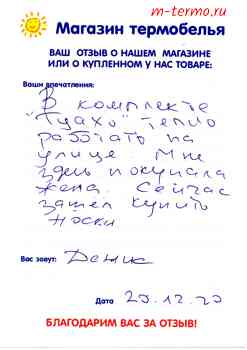 m-termo.ru
Магазин термобелья
ВАШ ОТЗЫВ О НАШЕМ МАГАЗИНЕ
ИЛИ О КУПЛЕННОМ У НАС ТОВАРЕ:
Ваши впечатления:
В комплекте
"Гуахо" тепло
работать на
улице. Мне
здесь покупала
жена. Сейчас
зашел купить
носки
Вас зовут: Денис
Дата 25.12.20
БЛАГОДАРИМ ВАС ЗА ОТЗЫВ!